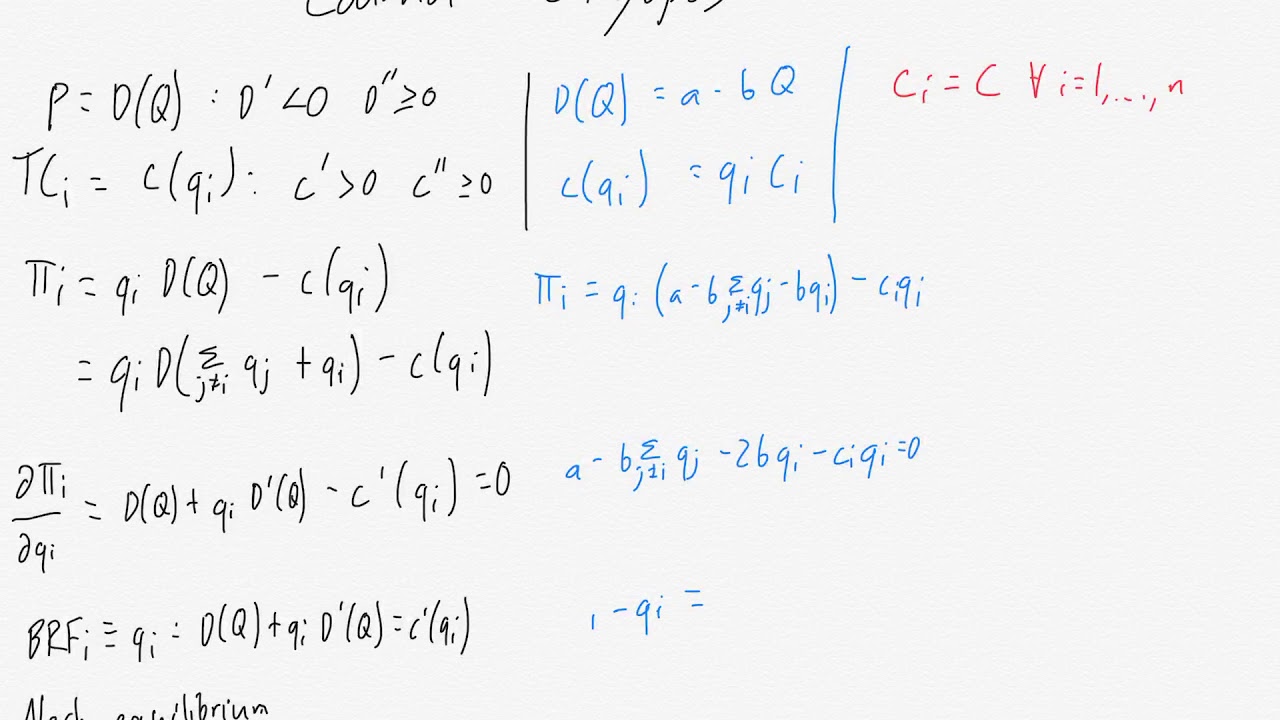 P = D(Q) : D' < 0 D'' ≥ 0
TC_i = c(q_i) : c' > 0 c'' ≥ 0
D(Q) = a - b Q
c(q_i) = q_i C_i
C_i = C ∀ i = 1, ..., n
π_i = q_i D(Q) - c(q_i)
= q_i D(Σ_{j≠i} q_j + q_i) - c(q_i)
π_i = q_i (a - b Σ_{j≠i} q_j - b q_i) - c_i q_i
∂π_i / ∂q_i = D(Q) + q_i D'(Q) - c'(q_i) = 0
a - b Σ_{j≠i} q_j - 2b q_i - c_i q_i = 0
BRF_i ≡ q_i : D(Q) + q_i D'(Q) = c'(q_i)
- q_i =
Nash equilibrium